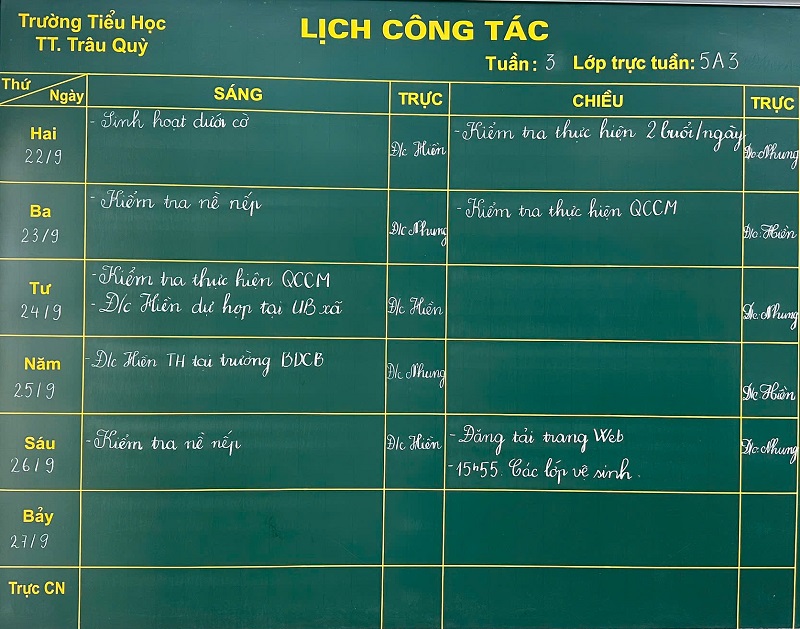 Trường Tiểu Học
TT. Trâu Quỳ
LỊCH CÔNG TÁC
Tuần: 3 Lớp trực tuần: 5A3
Thứ
Ngày
SÁNG
TRỰC
CHIỀU
TRỰC
Hai
22/9
- Sinh hoạt dưới cờ
Đ/c Hiền
- Kiểm tra thực hiện 2 buổi/ngày
Đ/c: Nhung
Ba
23/9
- Kiểm tra nề nếp
Đ/c Nhung
- Kiểm tra thực hiện QCCM
Đ/c: Hiền
Tư
24/9
- Kiểm tra thực hiện QCCM
- Đ/c Hiền dự họp tại UB xã
Đ/c Hiền
Đ/c: Nhung
Năm
25/9
- Đ/c Hiền TH tại trường BDCB
Đ/c Nhung
Đ/c Hiền
Sáu
26/9
- Kiểm tra nề nếp
Đ/c Hiền
- Đăng tải trang Web
- 15h55. Các lớp vệ sinh.
Đ/c: Nhung
Bảy
27/9
Trực CN